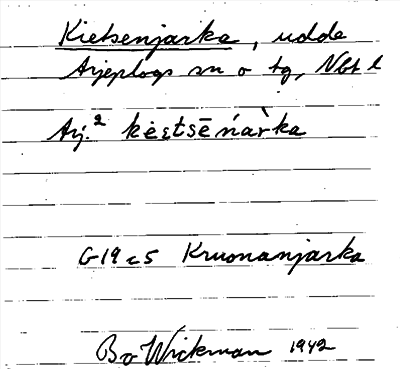 Kietsenjarka, udde
Arjeplogs sn o tg, Nbt l
Arj.² kėɛtsēńàr̀ka
G19c5 Kruonanjarka
Bo Wickman 1942